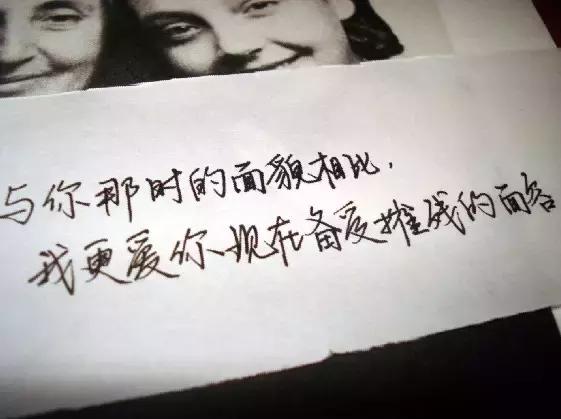 与你那时的面貌相比,
我更爱你现在备受摧残的面容